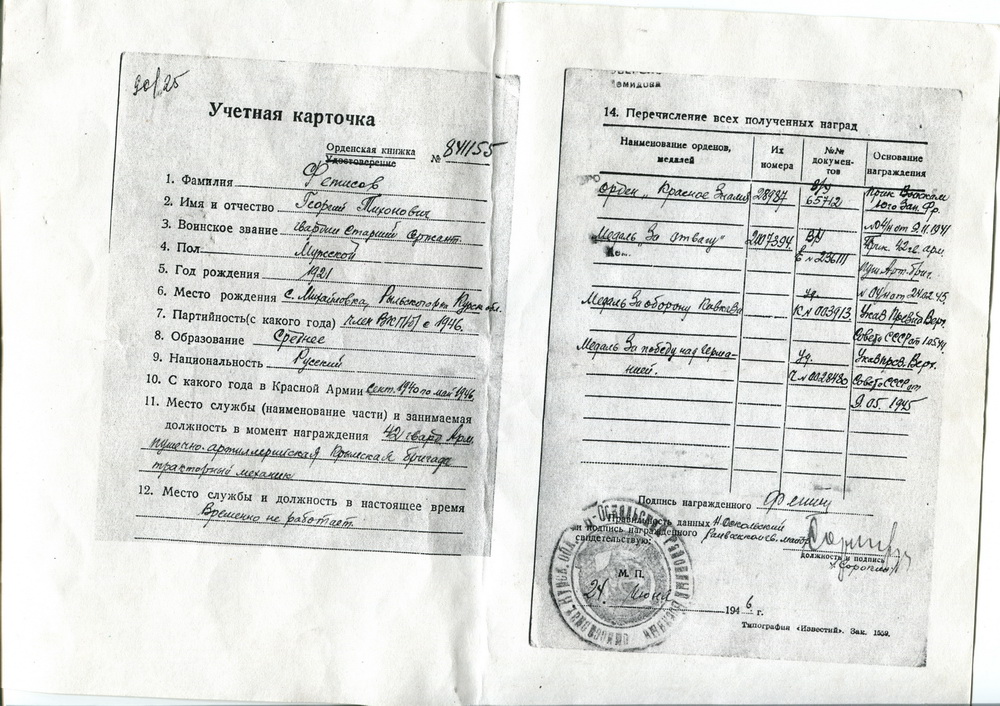 90/25
Учетная карточка
Орденская книжка
Удостоверение № 841155
1. Фамилия Фетисов
2. Имя и отчество Георгий Тихонович
3. Воинское звание гвардии Старший Сержант.
4. Пол Мужской
5. Год рождения 1921
6. Место рождения с. Михайловка, Рыльского р-на Курск. обл.
7. Партийность(с какого года) член ВКП(б) с 1946.
8. Образование Среднее
9. Национальность Русский
10. С какого года в Красной Армии Сент. 1940 по май 1946
11. Место службы (наименование части) и занимаемая
должность в момент награждения 42 гвард. Арм.
пушечно-артиллерийская Крымская бригада
тракторный механик
12. Место службы и должность в настоящее время
Временно не работает.
14. Перечисление всех полученных наград
Наименование орденов, медалей
Их номера
№№ документов
Основание награждения
Орден „Красное Знамя" 28987 в/у 65712 Прик. Войскам Юго Зап. Фр. № 04/н от 9.11.1941
Медаль „За отвагу" 2107394 ВУ в № 236111 Прик. 42 гв. арм. пуш. Арт. бриг. № 04/н от 24.02.45
Медаль За оборону Кавказа Уд. К № 003913 Указ През. Верх. Совета СССР от 1.05.44
Медаль За победу над Германией. Уд. Ч № 0028480 Указ през. Верх. Совета СССР от 9.05.1945
Подпись награжденного
Правильность данных Н. Оскольский
и подпись награжденного Райвоенком. майор
свидетельствую:
должность и подпись
М. П.
24 Июня 1946 г.
Типография «Известий». Зак. 1559.